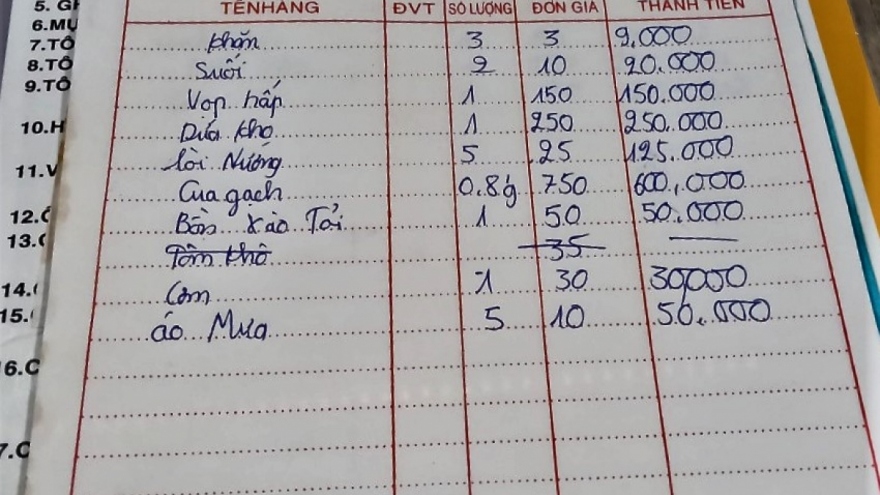 5. G
TÊN HÀNG ĐVT SỐ LƯỢNG ĐƠN GIÁ THÀNH TIỀN
6.MỤ
7.TÔ
khăn 3 3 9.000
8.TÔ
Suối 2 10 20.000
9.TÔ
Vọp hấp 1 150 150.000
10.H
Dừa kho 1 250 250.000
lòi Nướng 5 25 125.000
11.V
Cua gạch 0.8 750 600.000
12.
Bồn xào Tỏi 1 50 50.000
13.
Tôm khô 35
14.
Cơm 1 30 30,000
15.
áo Mưa 5 10 50.000
6.C
7.C